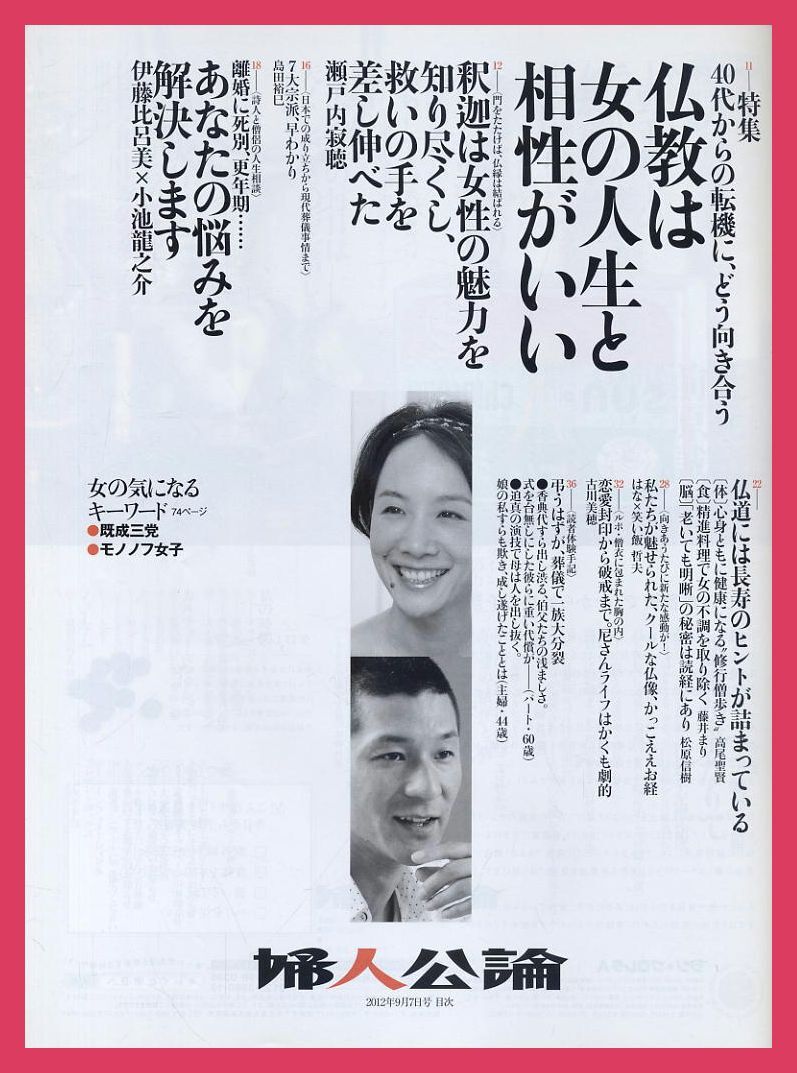 11―特集
40代からの転機に、どう向き合う
仏教は
女の人生と
相性がいい
12―〈門をたたけば、仏縁は結ばれる〉
釈迦は女性の魅力を
知り尽くし、
救いの手を
差し伸べた
瀬戸内寂聴
16―〈日本での成り立ちから現代葬儀事情まで〉
7大宗派、早わかり
島田裕巳
18―〈詩人と僧侶の人生相談〉
離婚に死別、更年期……
あなたの悩みを
解決します
伊藤比呂美×小池龍之介
22―
仏道には長寿のヒントが詰まっている
[体]心身ともに健康になる"修行僧歩き" 高尾聖賢
[食]精進料理で女の不調を取り除く 藤井まり
[脳]「老いても明晰」の秘密は読経にあり 松原信樹
28―〈向きあうたびに新たな感動が!〉
私たちが魅せられた、クールな仏像、かっこええお経
はな×笑い飯 哲夫
32―〈ルポ・僧衣に包まれた胸の内〉
恋愛封印から破戒まで。尼さんライフはかくも劇的
古川美穂
36―〈読者体験手記〉
弔うはずが、葬儀で一族大分裂
●香典代すら出し渋る、伯父たちの浅ましさ。
式を台無しにした彼らに重い代償が――(パート・60歳)
●迫真の演技で母は人を出し抜く。
娘の私すらも欺き、成し遂げたこととは(主婦・44歳)
女の気になる
キーワード 74ページ
●既成三党
●モノノフ女子
婦人公論
2012年9月7日号 目次